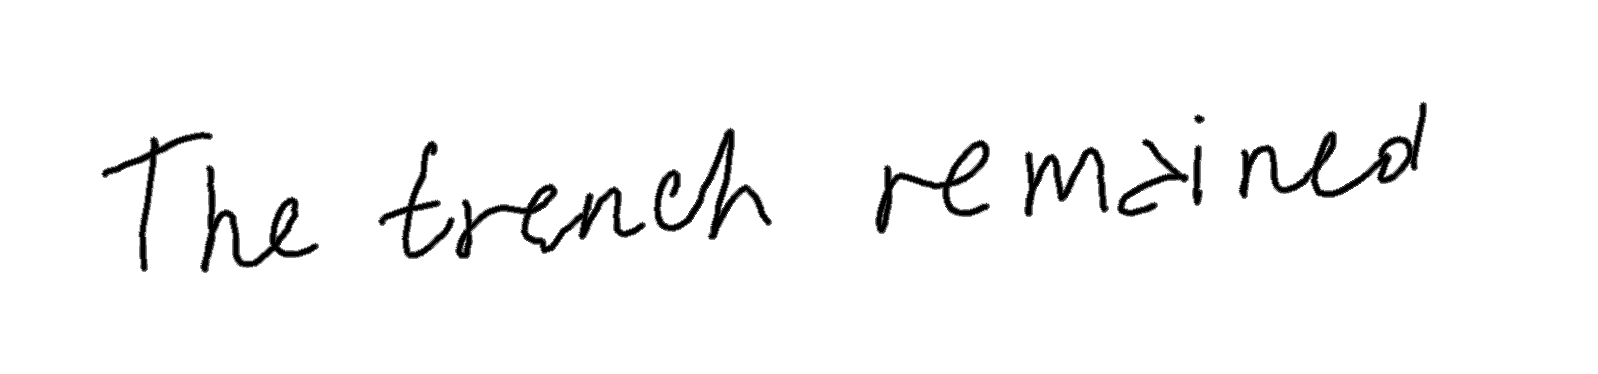 The trench remained